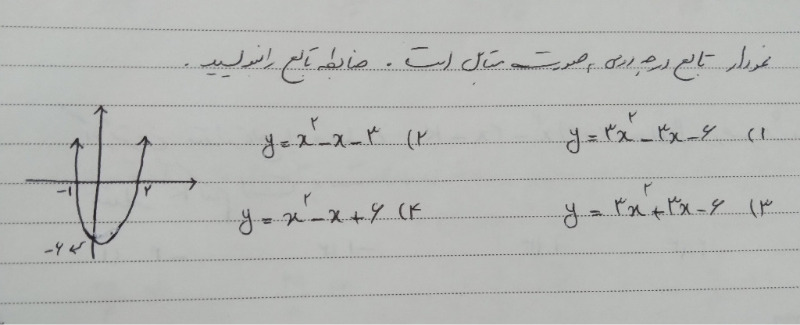 نمودار تابع درجه دومی به صورت مقابل است . ضابطه تابع را بنویسید .
۱) y = ۳x^۲ - ۳x - ۶
۲) y = x^۲ - x - ۳
۳) y = ۳x^۲ + ۳x - ۶
۴) y = x^۲ - x + ۶
-۱
۲
-۶